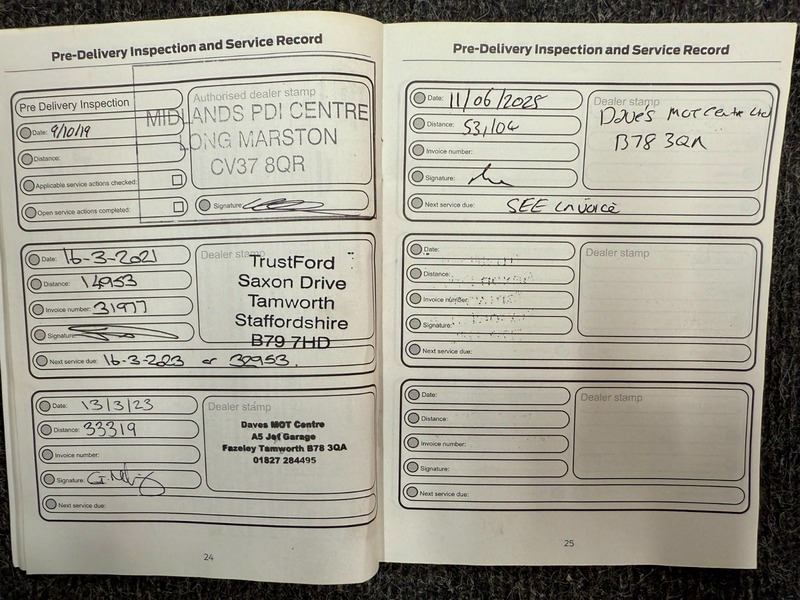 Pre-Delivery Inspection and Service Record
Pre Delivery Inspection
Date: 9/10/19
Distance:
Applicable service actions checked:
Open service actions completed:
Authorised dealer stamp
MIDLANDS PDI CENTRE
LONG MARSTON
CV37 8QR
Signature:
Date: 16-3-2021
Distance: 14953
Invoice number: 31977
Signature:
Next service due: 16-3-2023 or 32953.
Dealer stamp
TrustFord
Saxon Drive
Tamworth
Staffordshire
B79 7HD
Date: 13/3/23
Distance: 33319
Invoice number:
Signature:
Next service due:
Dealer stamp
Daves MOT Centre
A5 Jet Garage
Fazeley Tamworth B78 3QA
01827 284495
24
Pre-Delivery Inspection and Service Record
Date: 11/06/2025
Distance: 53,104
Invoice number:
Signature:
Next service due: SEE Invoice
Dealer stamp
Dave's MOT Centre Ltd
B78 3QA
Date:
Distance:
Invoice number:
Signature:
Next service due:
Dealer stamp
Date:
Distance:
Invoice number:
Signature:
Next service due:
Dealer stamp
25